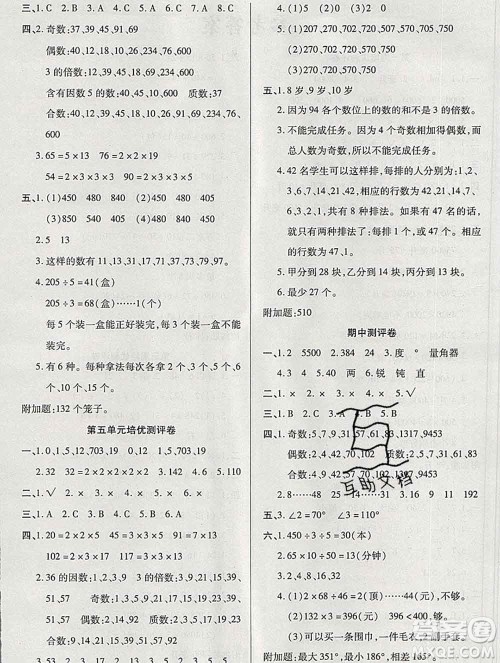 三、1.C 2.B 3.A 4.C 5.C
四、2.奇数:37,45,91,69
偶数:40,12,18,24,76,600
3的倍数:12,45,18,24,69,600
含有因数5的数:40,45,600 质数:37
合数:40,12,45,18,24,91,69,76,
600
3. 65=5×13 76=2×2×19
54=2×3×3×3 57=3×19
五、1.(1)450 480 840 (2)450 540
(3)850 480 540 580 450 840
2.5 13
3.这样的数有11,13,31,17,71,37,73,79,97
4. 205÷5=41(盒)
205÷3=68(盒)……1(个)
每5个装一盒能正好装完,每3个装一盒
不能正好装完。
5.有6种。每种拿法每次各拿1个、2个、3
个、4个、6个、12个。
附加题:132个笼子。
第五单元培优测评卷
一、1.0,1,5,12,703,19 0,12 1,5,703,19
2.32 32=2×2×2×2×2
二、1.√ 2.× 3.× 4.× 5.×
三、1.C 2.A 3.B 4.B 5.B
四、1.20=2×2×5 51=3×17
102=2×3×17 117=3×3×13
2.36的因数:1,2,3,9 3的倍数:3,9,39,
51,57 奇数:1,3,9,13,17,37,39,
51,57 偶数:2 质数:2,3,13,17,37
合数:9,39,51,57
(1)207,270,702,720,207,750
(2)207,270,702,720,270,750
(3)270,720,750
五、1.8岁,9岁,10岁
2.因为94各个数位上的数的和不是3的倍数。
3.不能完成任务。4个奇数相加得偶数,而
总人数为奇数,所以不能完成。
4.42名学生可以这样排,每排的人分别为:1,2,
3,6,7,14,21,42名,相应的行数为42,21,14,7,
6,3,2,1,共有8种排法。如果有47名,那么
就只有两种排法:每行1名或47名,相应
的行数为47,1。
5.甲分到28块,乙分到14块,丙分到16块。
6.最少27个。
附加题:510
期中测评卷
一、1.2 5500 2.384 24 3.度 ° 量角器
4.20 40 140 2.66 锐 钝 直
二、1.× 2.× 3.× 4.× 5.√
三、1.C 2.B 3.A 4.B 5.B
四、1.奇数:
偶数:4,42,90,192 质数:
合数:4,9,42,57,
2.8……48 15……31 3.216 9 192
五、1.∠2=70° ∠3=110°
2.65×10÷25+4=30(本)
3.65×10÷13-35=15(分钟)
4.(1)2×132÷6=44(元),不够。
(2)(132×3)元,396<400,够。
(3)可以买一条围巾,一件毛衣
7.最大351°,最小186°,相差165°。
互助文档
答案圈
MXQE.COM